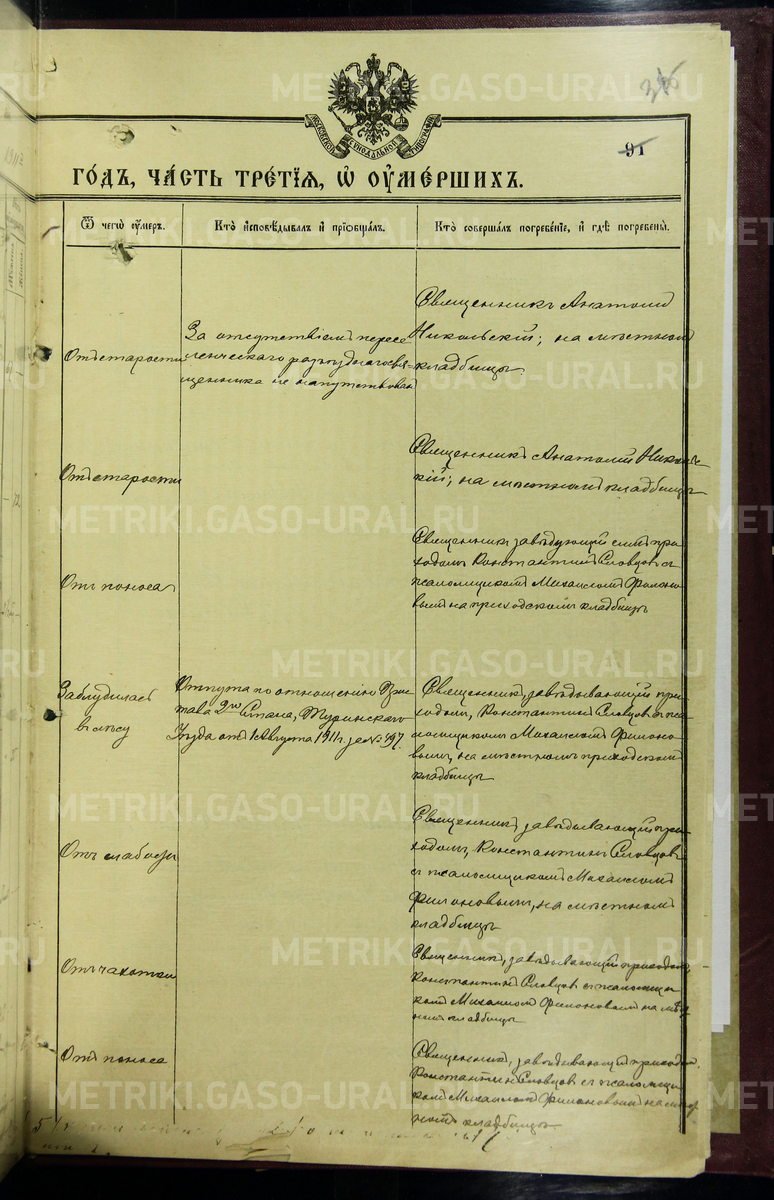 315
МОСКОВСКОЙ СѴНОДАЛЬНОЙ ТИПОГРАФІИ
91
ГО́ДЪ, ЧА́СТЬ ТРЕ́ТІѦ, Ѡ҆ ОУ҆МЕ́РШИХЪ.
Ѿ чегѡ̀ ѹ҆́меръ.
Кто̀ и҆сповѣ́дывалъ и҆ прїѡбща́лъ.
Кто̀ соверша́лъ погребе́нїе, и҆ гдѣ̀ погребены̀.
Отъ старости
За отсутствіемъ пересе
ленческаго разъѣзднаго свя-
щенника не напутствован
Священникъ Анатолій
Никольскій; на мѣстномъ
кладбищѣ.
Отъ старости
Священникъ Анатолій Николь-
скій; на мѣстномъ кладбищѣ
Отъ поноса
Священникъ завѣдующій симъ при-
ходомъ Константинъ Словцовъ съ
псаломщикомъ Михаиломъ Филоно-
вымъ на приходскомъ кладбищѣ
Заблудилась
въ лѣсу
Отпѣта по отношенію Прис-
тава 2го Стана, Туринскаго
Уѣзда отъ 1 Августа 1911 г за № 497.
Священникъ, завѣдывающій при-
ходомъ, Константинъ Словцовъ съ пса-
ломщикомъ Михаиломъ Филоно-
вымъ, на мѣстномъ приходскомъ
кладбищѣ
Отъ слабости
Священникъ, завѣдывающій при-
ходомъ, Константинъ Словцовъ
съ псаломщикомъ Михаиломъ
Филоновымъ, на мѣстномъ
кладбищѣ
Отъ чахотки
Священникъ, завѣдывающій приходомъ,
Константинъ Словцовъ съ псаломщи-
комъ Михаиломъ Филоновымъ на мѣст
номъ кладбищѣ
Отъ поноса
Священник, завѣдывающій приходом,
Константинъ Словцовъ съ псаломщи-
комъ Михаиломъ Филоновымъ на мѣст
номъ кладбищѣ
METRIKI.GASO-URAL.RU